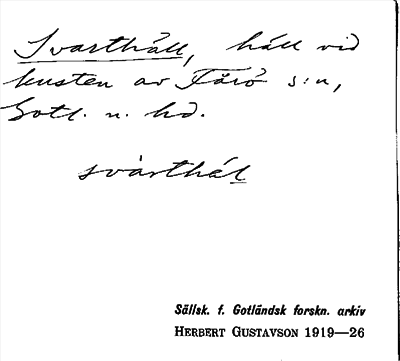 Svarthäll, häll vid
kusten av Fårö s:n,
Gotl. n. hd.
svàrthäl
Sällsk. f. Gotländsk forskn. arkiv
HERBERT GUSTAVSON 1919—26